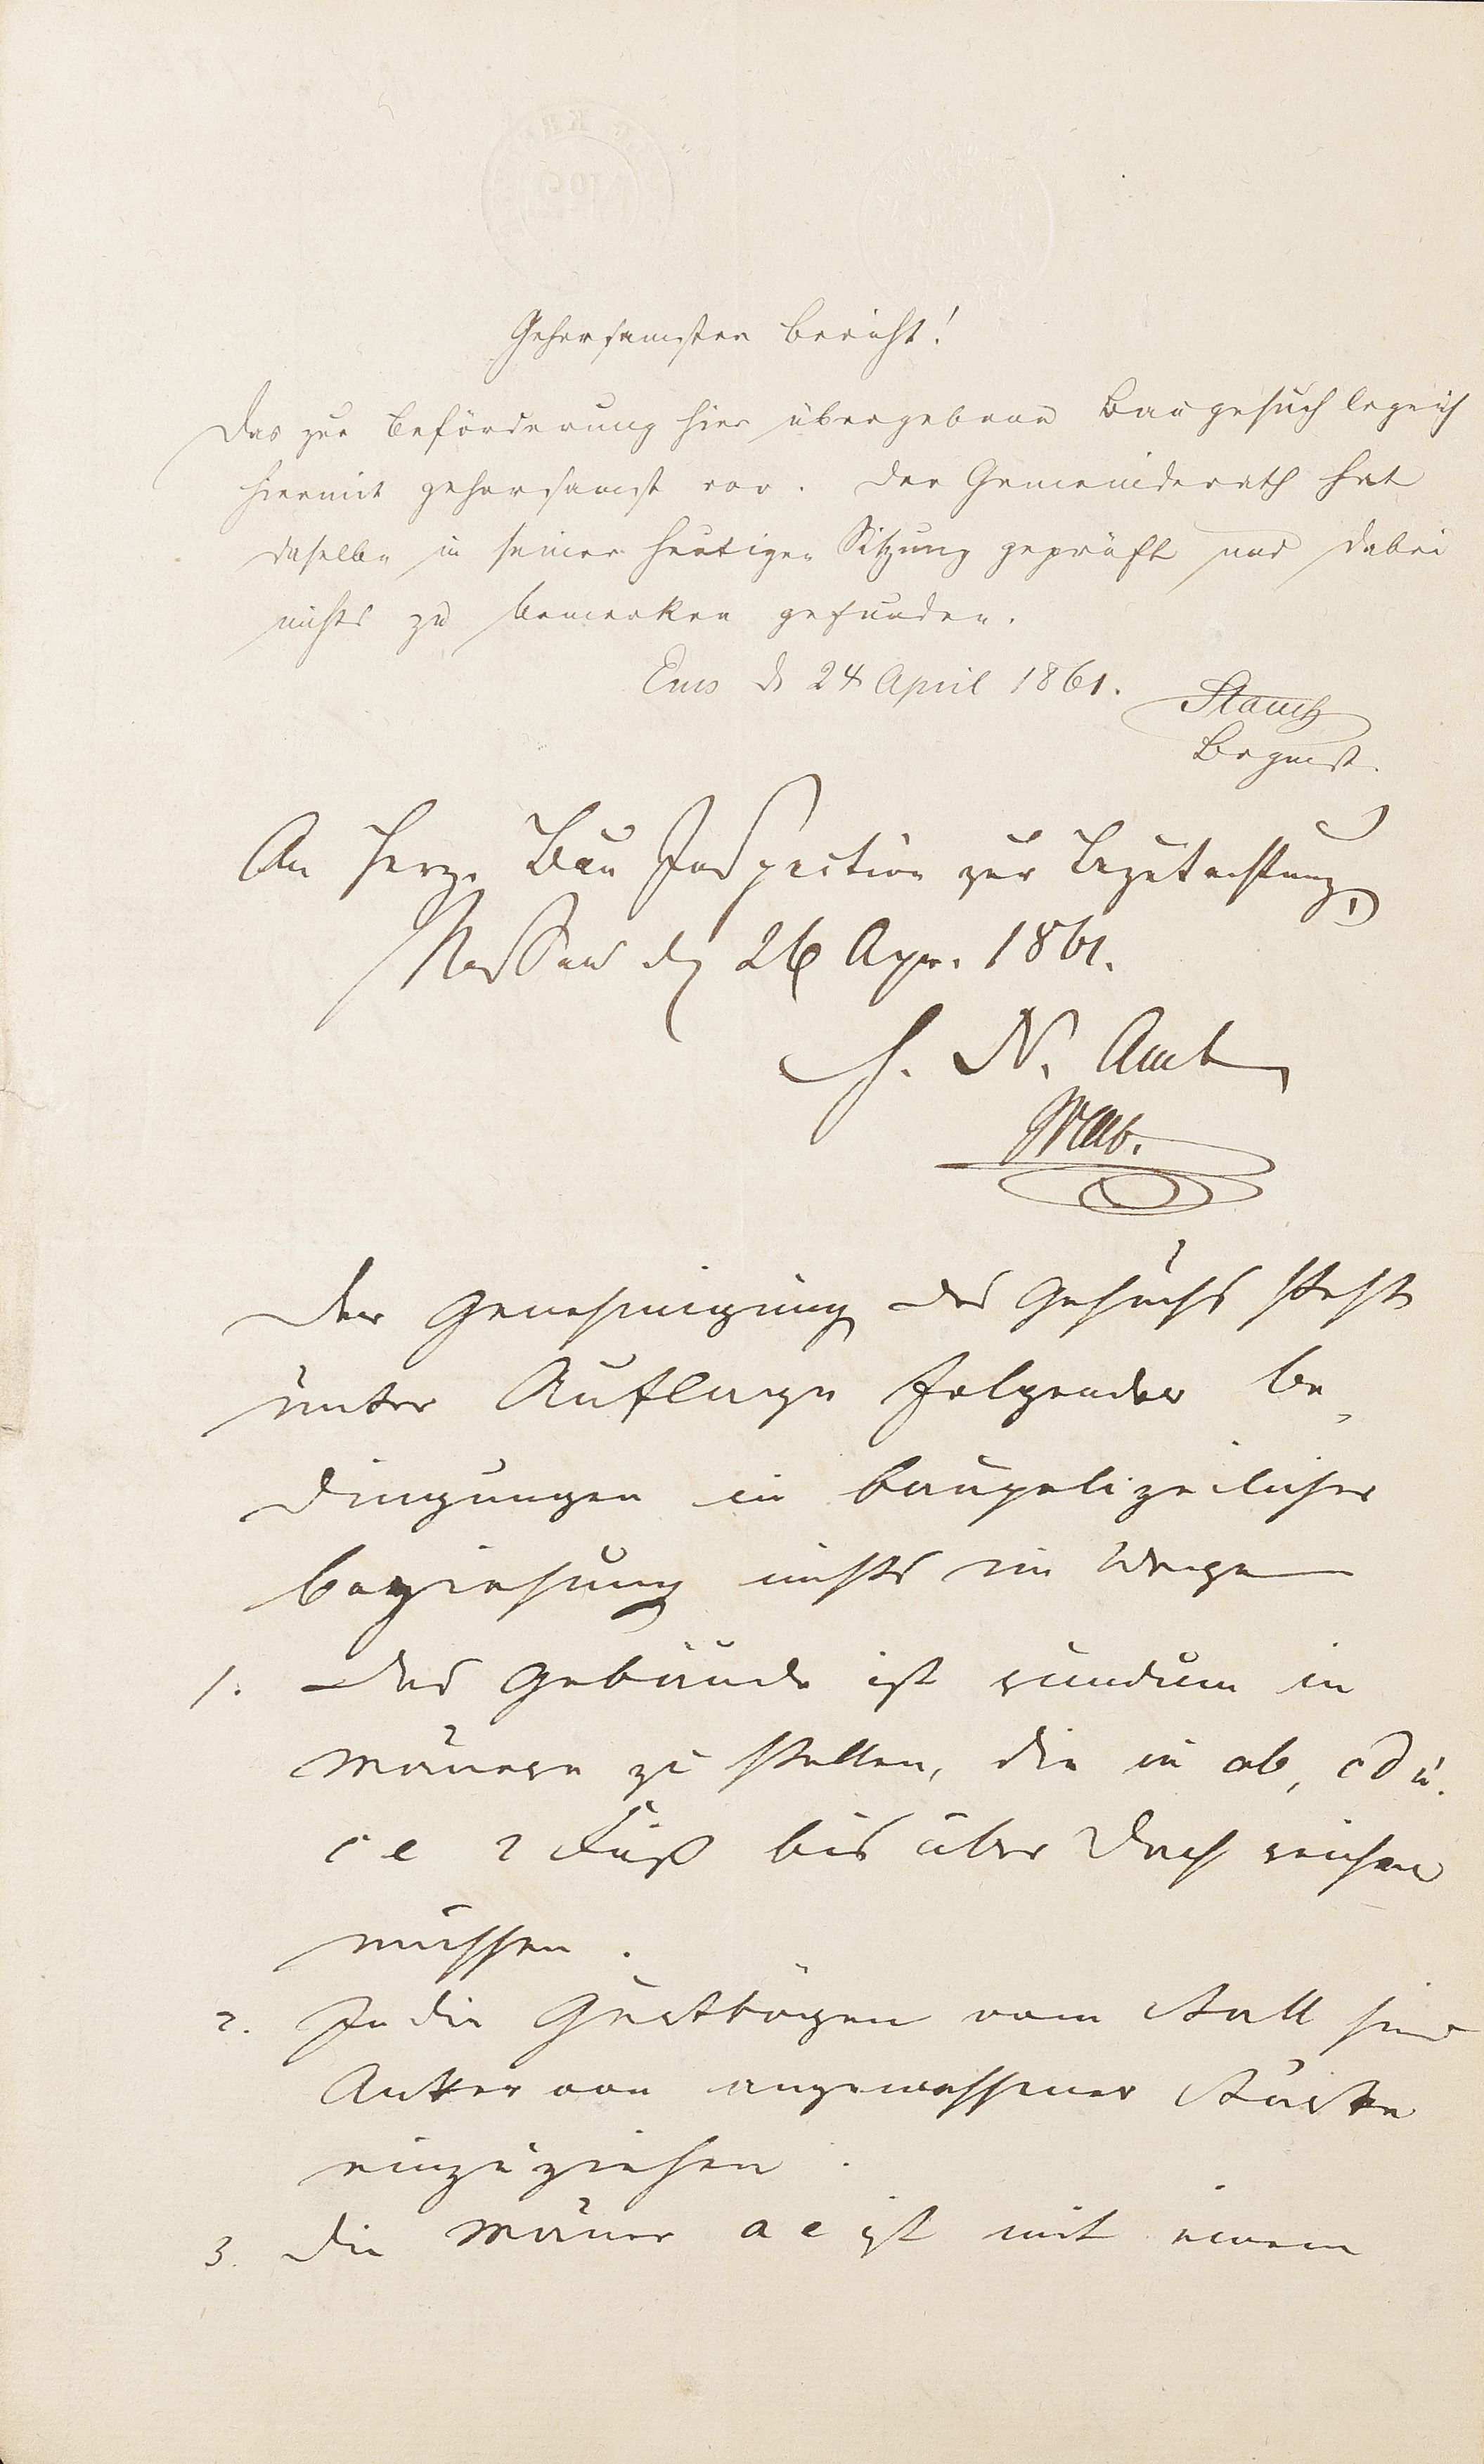 Gehorsamster Bericht!
Das zur Beförderung hier übergebene Baugesuch lege ich
hiermit gehorsamst vor. Der Gemeinderath hat
daselbe in seiner heutigen Sitzung geprüft und dabei
nichts zu bemerken gefunden.
Ems d 24 April 1861.
Brgmst.
An Herzg. Bau Inspection zur Begutachtung
Nassau den 26 Apr. 1861.
H. N. Amt
Der Genehmigung des Gesuchs steht
unter Auflage folgender Be,
dingungen in baupolizeilicher
Beziehung nichts im Wege
1. Das Gebäude ist rundum in
Mauern zu stellen, die in ab, cd u.
ce 2 Fuß bis über Dach reichen
müssen.
2. In die Gurtbögen vom Stall sind
Anker von angemessener Stärke
einzuziehen.
3. Die Mauer ae ist mit einem